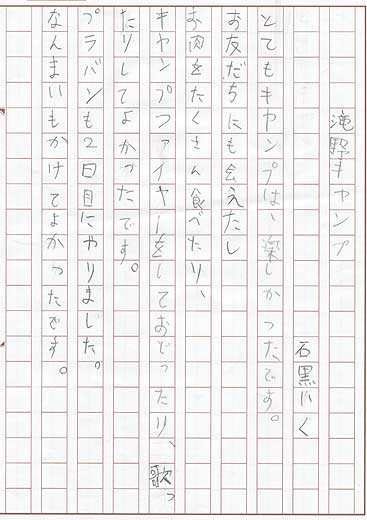 滝野キャンプ
石黒りく
とてもキャンプは、楽しかったです。
お友だちにも会えたし
お肉をたくさん食べたり、
キャンプファイヤーをしておどったり、歌っ
たりしてよかったです。
プラバンも2日目にやりました。
なんまいもかけてよかったです。